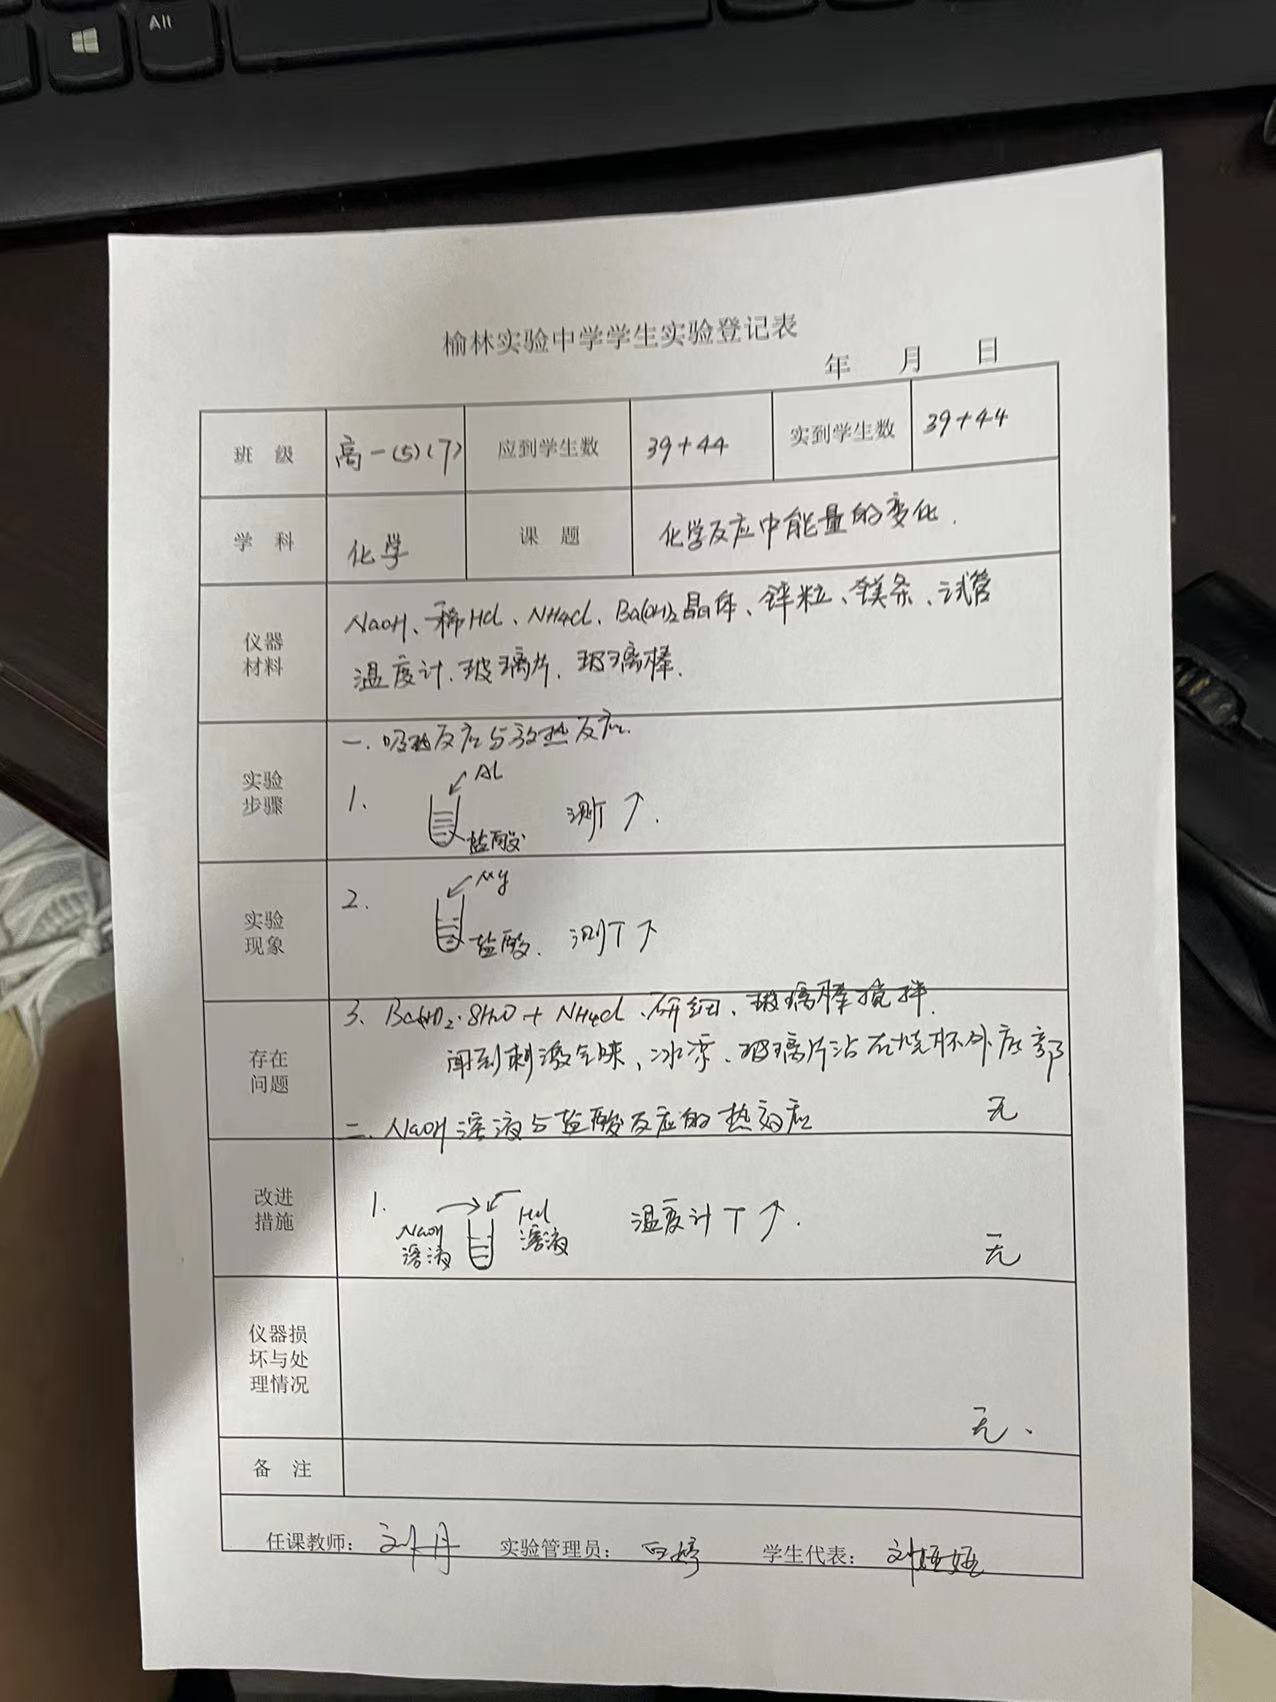 All
榆林实验中学学生实验登记表
年 月 日
班 级 高一(5)(7) 应到学生数 39+44 实到学生数 39+44
学 科 化学 课 题 化学反应中能量的变化.
仪器
材料
NaOH、稀HCl、NH4Cl、Ba(OH)2晶体、锌粒、镁条、试管
温度计、玻璃片、玻璃棒.
实验
步骤
一.吸热反应与放热反应.
1. Al
盐酸 测T↑.
实验
现象
2. Mg
盐酸. 测T↑
存在
问题
3. Ba(OH)2·8H2O + NH4Cl、研细、玻璃棒搅拌.
闻到刺激气味、冰凉、玻璃片沾在烧杯外底部
二.NaOH溶液与盐酸反应的热效应 无
改进
措施
1. NaOH
溶液
HCl
溶液
温度计T↑.
无
仪器损
坏与处
理情况
无.
备 注
任课教师: 刘丹 实验管理员: 学生代表: 刘娅娅